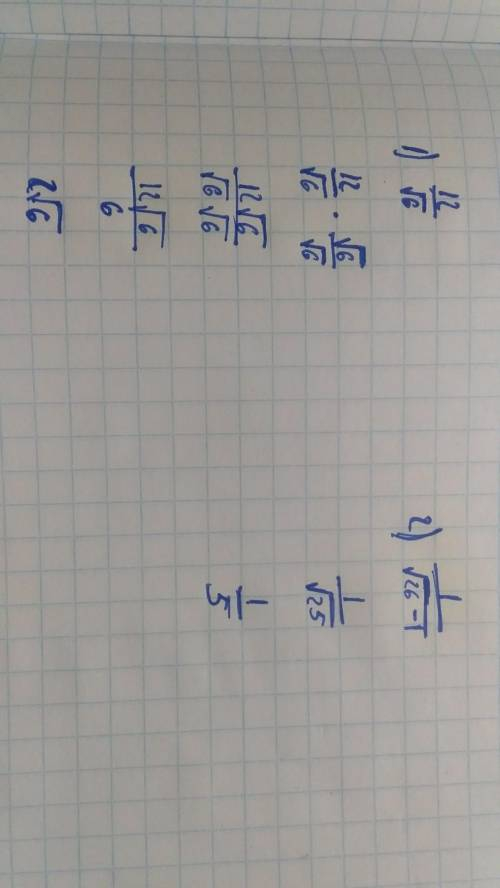 1) 12/√6
12/√6 · √6/√6
12√6/√6√6
12√6/6
2√6
2) 1/√26-1
1/√25
1/5